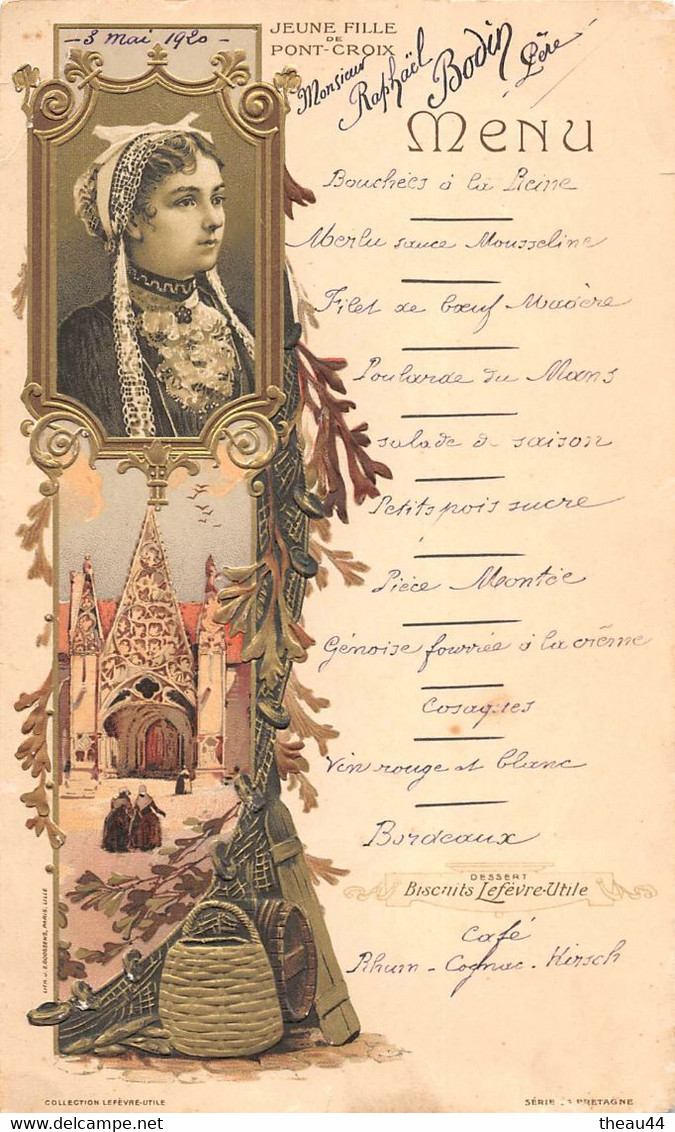 - 3 mai 1920 -
JEUNE FILLE
DE
PONT-CROIX
Monsieur Raphaël Bodin Père
MENU
Bouchées à la Reine
Merlu sauce Mousseline
Filet de bœuf Madère
Poularde du Mans
salade de saison
Petits pois sucre
Pièce Montée
Génoise fourrée à la crème
Cosaques
Vin rouge et blanc
Bordeaux
DESSERT
Biscuits Lefèvre-Utile
Café
Rhum - Cognac - Kirsch
LITH. J.E. GOOSSENS, PARIS, LILLE
COLLECTION LEFÈVRE-UTILE
SÉRIE BRETAGNE
theau44